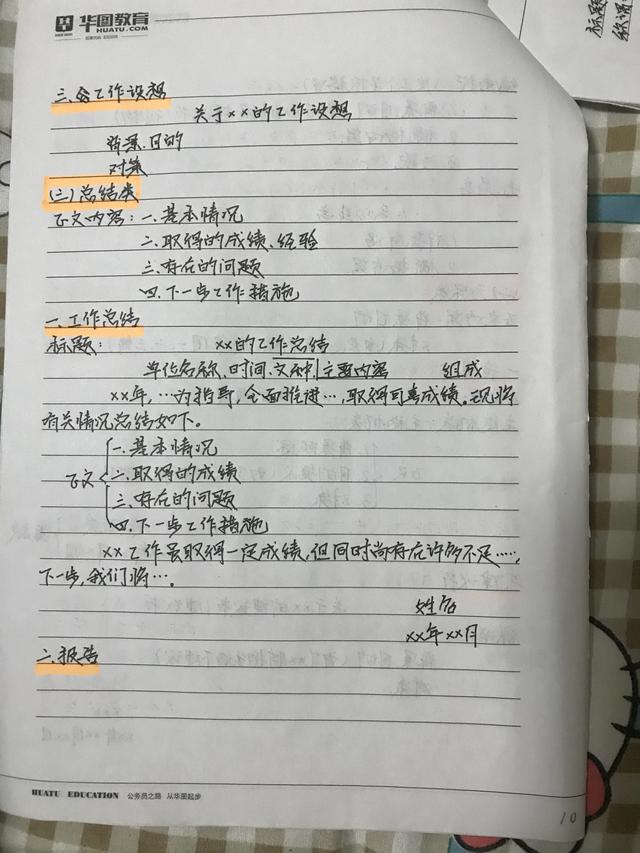 华图教育
HUATU.COM
标题
三.工作设想
关于xx的工作设想
背景.目的
对策
(三)总结类
正文内容:一.基本情况
二.取得的成绩、经验
三.存在的问题
四.下一步工作措施
一.工作总结
标题: xx的工作总结
单位名称、时间、文种、主要内容 组成
xx年,…为指导,全面推进…,取得可喜成绩。现将
有关情况总结如下。
一.基本情况
正文 二.取得的成绩
三.存在的问题
四.下一步工作措施
xx工作虽取得一定成绩,但同时尚存在许多不足……,
下一步,我们将…。
姓名
xx年xx月
二.报告
HUATU EDUCATION 公务员之路 从华图起步
10